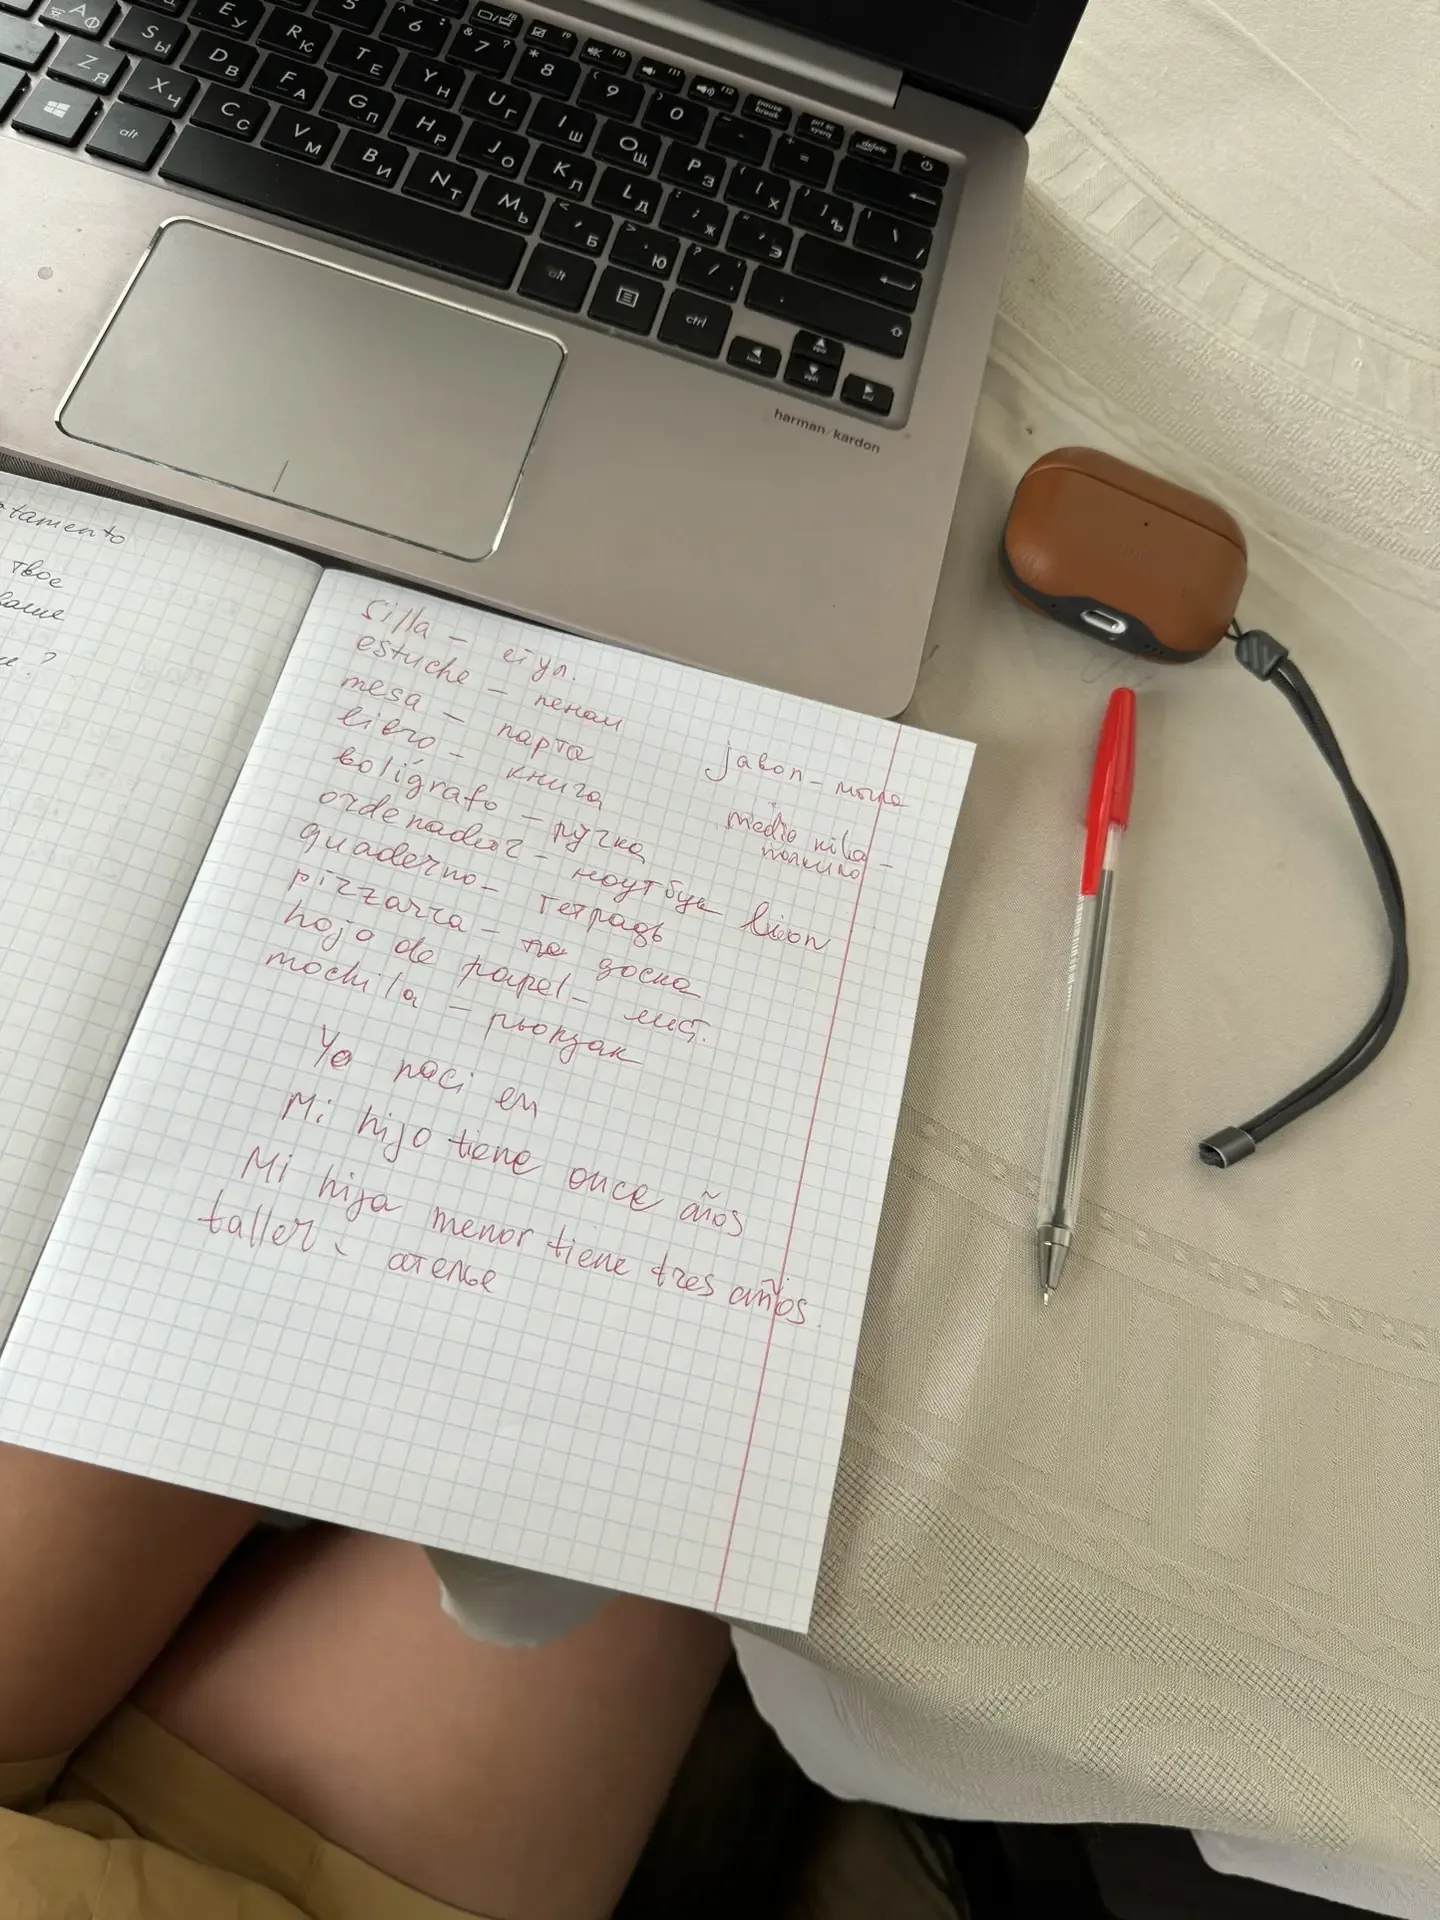 harman/kardon
tamento
твое
ваше
?
silla – стул.
estuche – пенал
mesa – парта
libro – книга
boligrafo – ручка
ordenador – ноутбук
quaderno – тетрадь
pizzarra – доска
hojo de papel – лист.
mochila – рюкзак
jabon – мыло
medio kilo –
полкило
Yo naci en
Mi hijo tiene once años
Mi hija menor tiene tres años.
taller – ателье